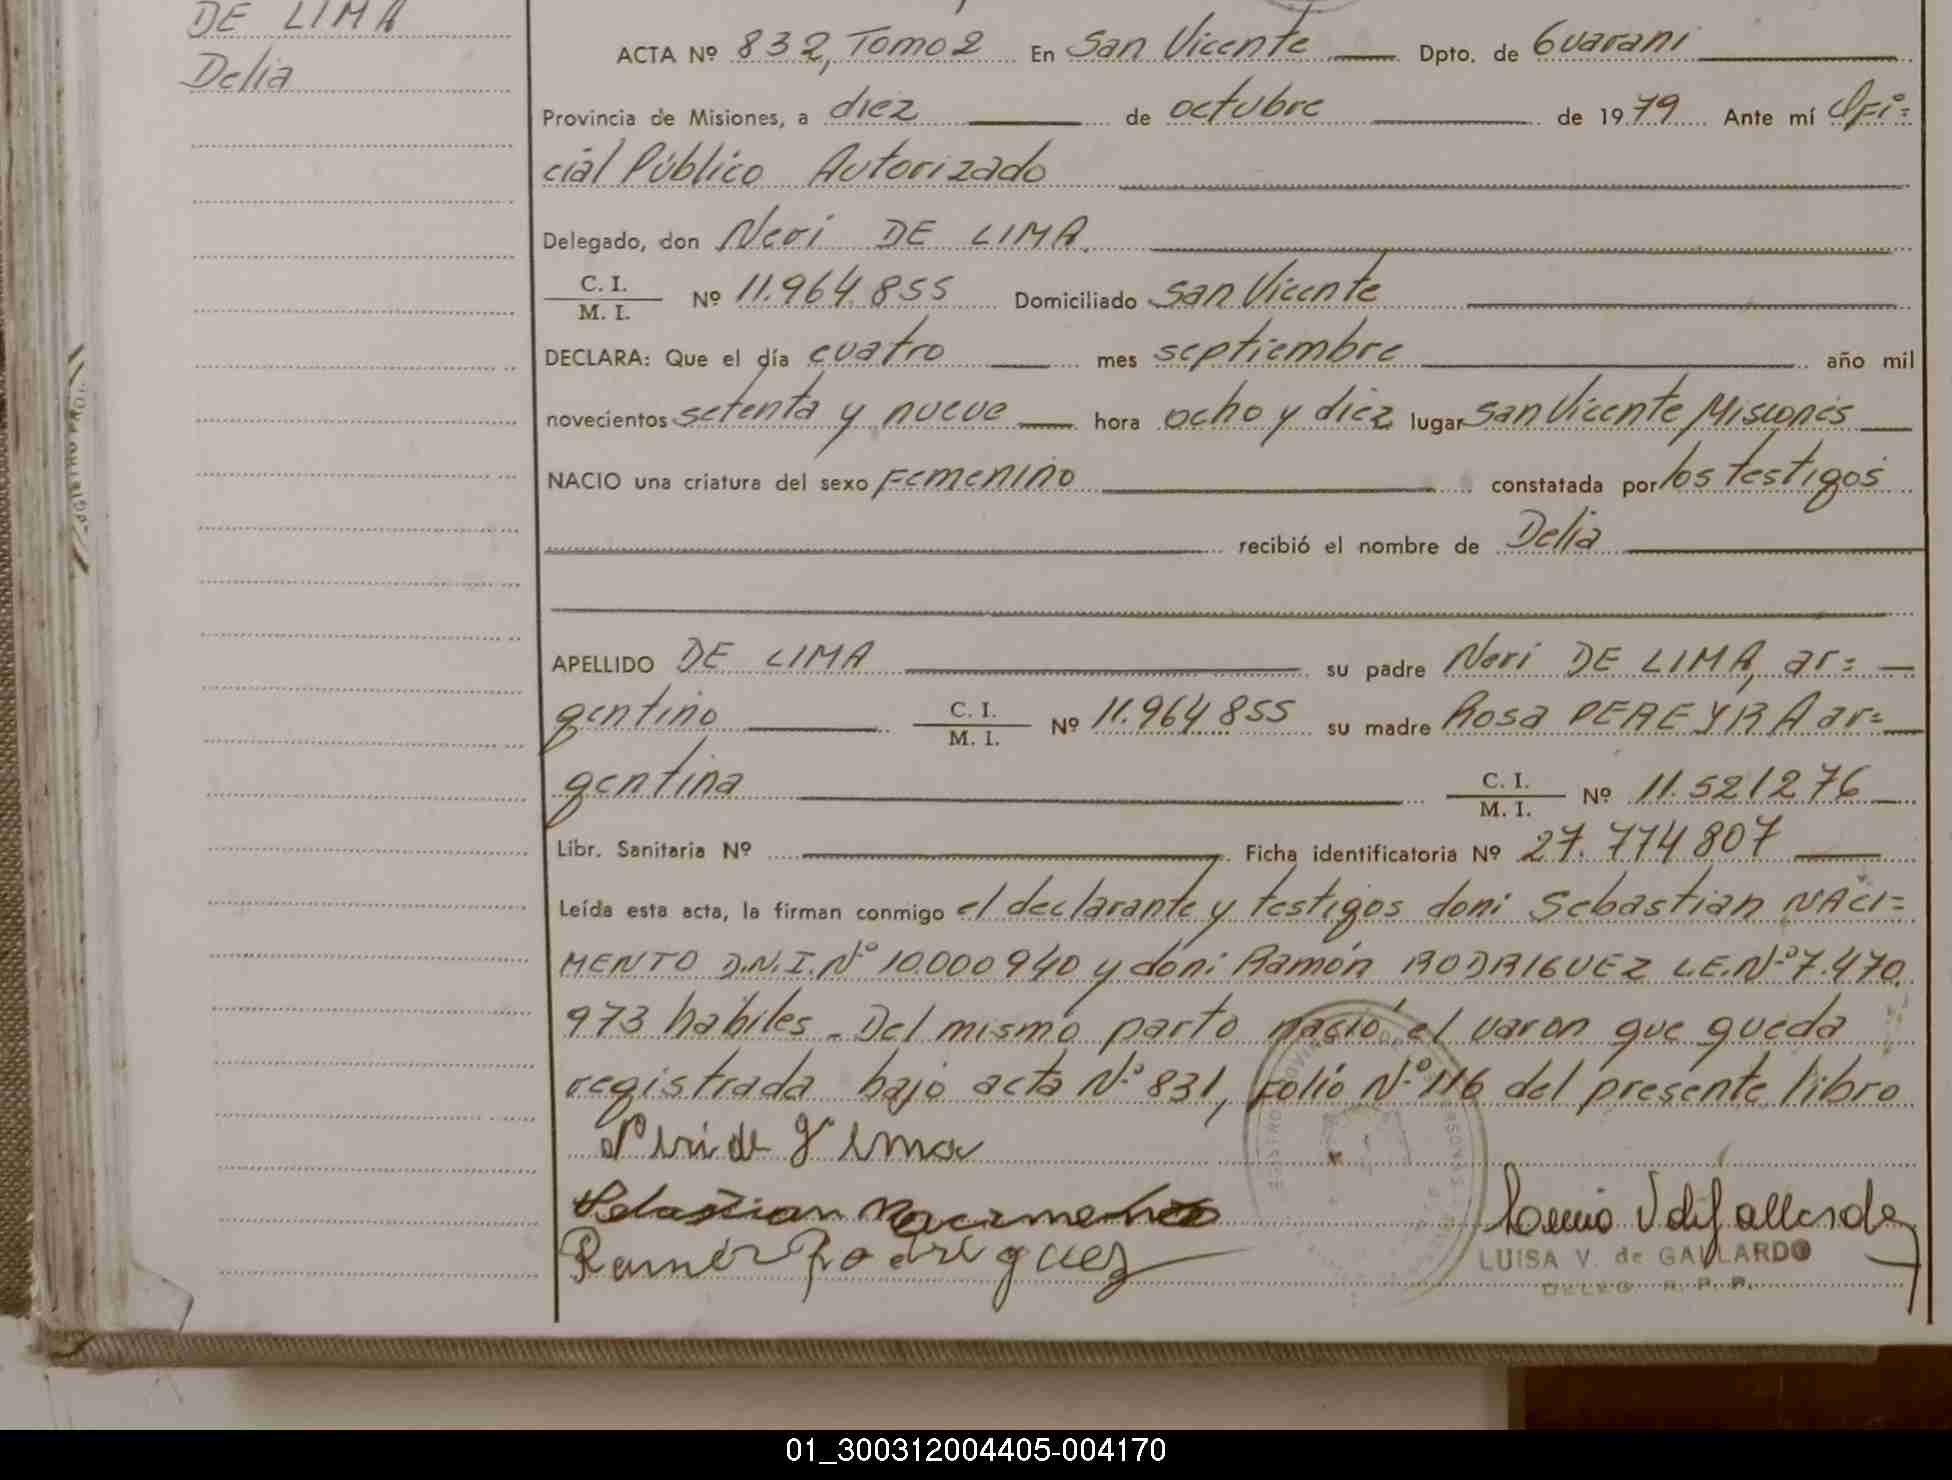 DE LIMA
Delia
ACTA Nº 832, Tomo 2 En San Vicente Dpto. de Guarani
Provincia de Misiones, a diez de octubre de 1979 Ante mí Ofi=
cial Público Autorizado
Delegado, don Neri DE LIMA
C. I.
M. I. Nº 11.964.855 Domiciliado San Vicente
DECLARA: Que el día cuatro mes septiembre año mil
novecientos setenta y nueve hora ocho y diez lugar San Vicente Misiones
NACIO una criatura del sexo Femenino constatada por los testigos
recibió el nombre de Delia
APELLIDO DE LIMA su padre Neri DE LIMA, ar=
gentino C. I.
M. I. Nº 11.964 855 su madre Rosa PEREYRA ar=
gentina C. I.
M. I. Nº 11.521276
Libr. Sanitaria Nº Ficha identificatoria Nº 27.774 807
Leída esta acta, la firman conmigo el declarante y testigos don: Sebastian NACI=
MENTO D.N.I. Nº 10.000940 y don: Ramón RODRIGUEZ L.E. Nº 7.470.
973 habiles. Del mismo parto nació el varon que queda
registrada bajo acta Nº 831, folio Nº 116 del presente libro
Neri de Lima
Sebastian Nacimento
Ramón Rodriguez
LUISA V. de GALLARDO
DELEG. R. P. P.
01_300312004405-004170